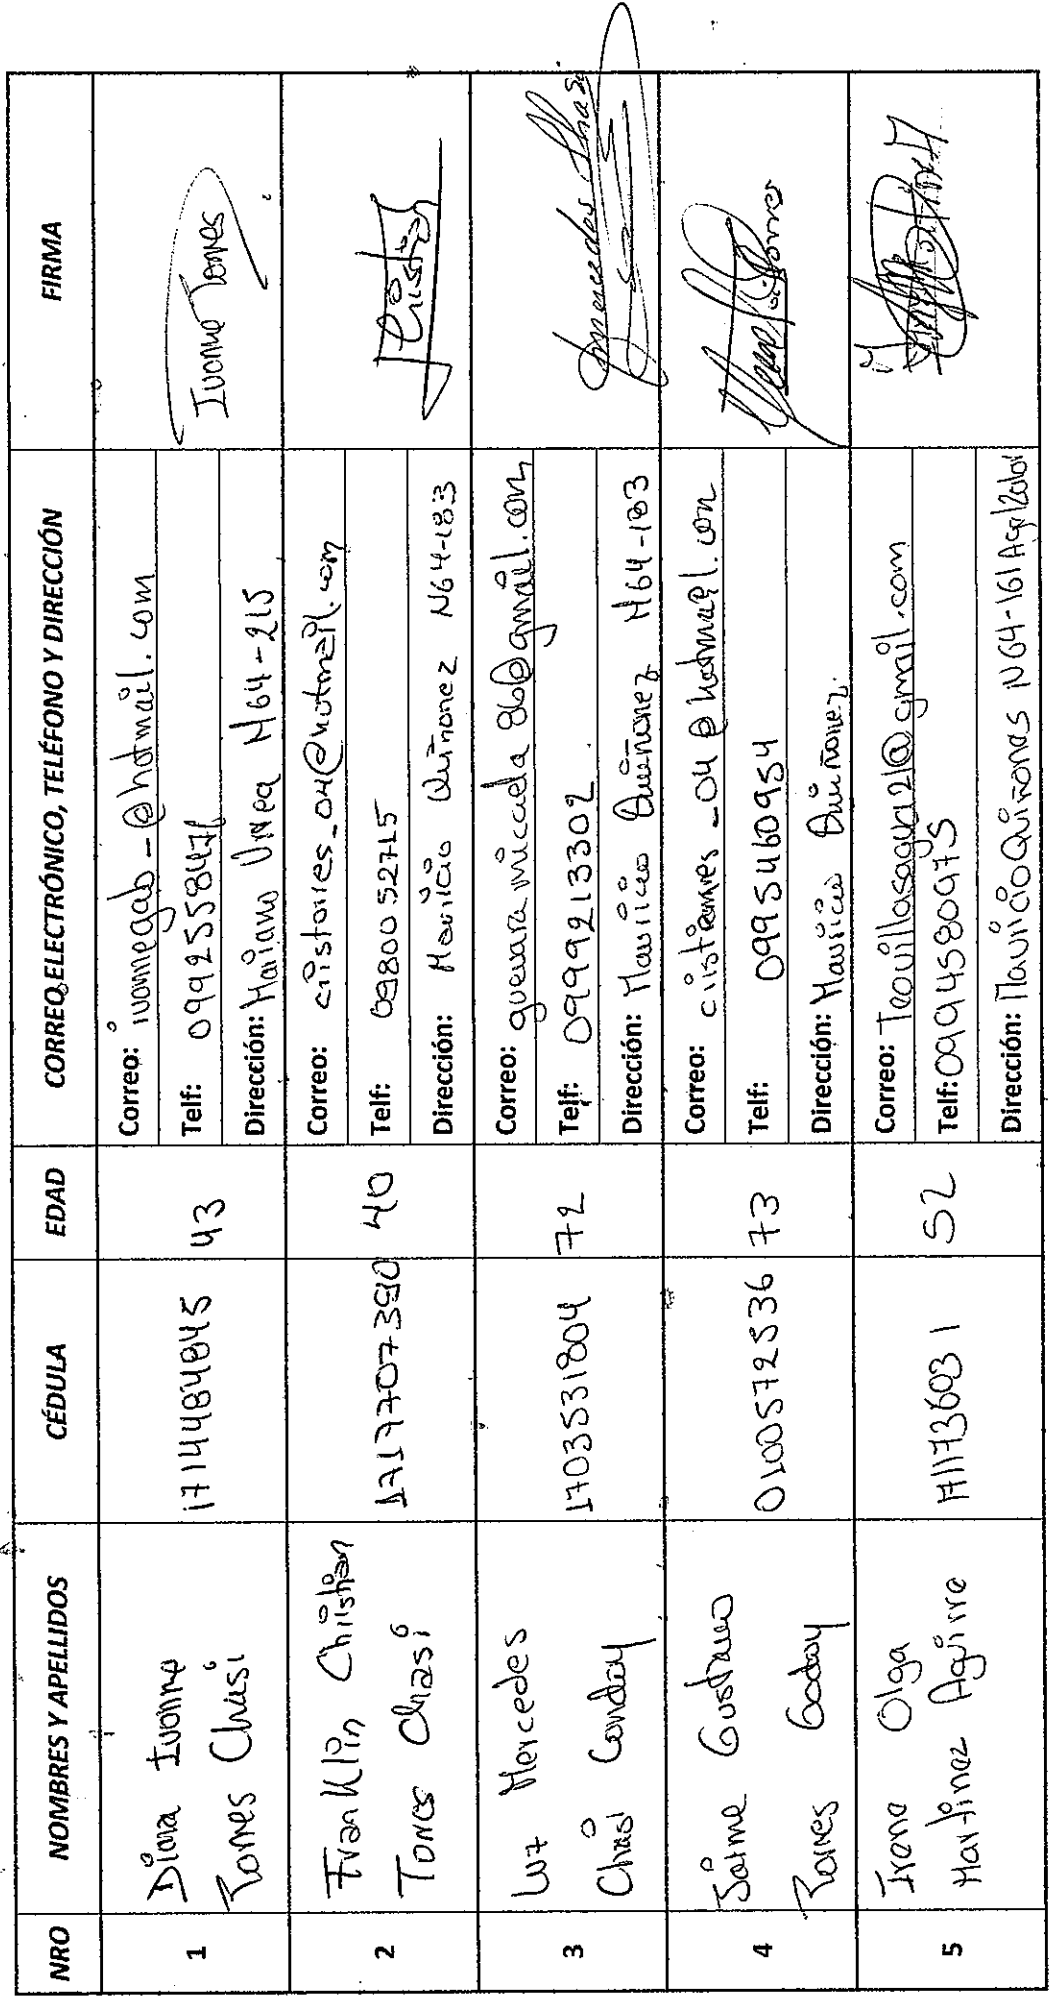 NRO NOMBRES Y APELLIDOS CÉDULA EDAD CORREO ELECTRÓNICO, TELÉFONO Y DIRECCIÓN FIRMA
1
Diana Ivonne
Torres Chasi
1714484845
43
Correo: ivonnegab-@hotmail.com
Telf: 0992558476
Dirección: Mariano Urrea N64-215
Ivonne Torres
2
Franklin Christian
Torres Chasi
1717707390
40
Correo: cristorres_04@hotmail.com
Telf: 0980052715
Dirección: Mauricio Quiñonez N64-183
3
Luz Mercedes
Chasi Condoy
1703531804
72
Correo: guevara micaela 86@gmail.com
Telf: 0999213302
Dirección: Mauricio Quiñonez N64-183
Mercedes Chasi
4
Jaime Gustavo
Torres Godoy
0100572536
73
Correo: cristorres_04@hotmail.com
Telf: 0995460954
Dirección: Mauricio Quiñonez.
5
Irene Olga
Martinez Aguirre
1711736031
52
Correo: @gmail.com
Telf: 0994580975
Dirección: Mauricio Quiñonas N64-161